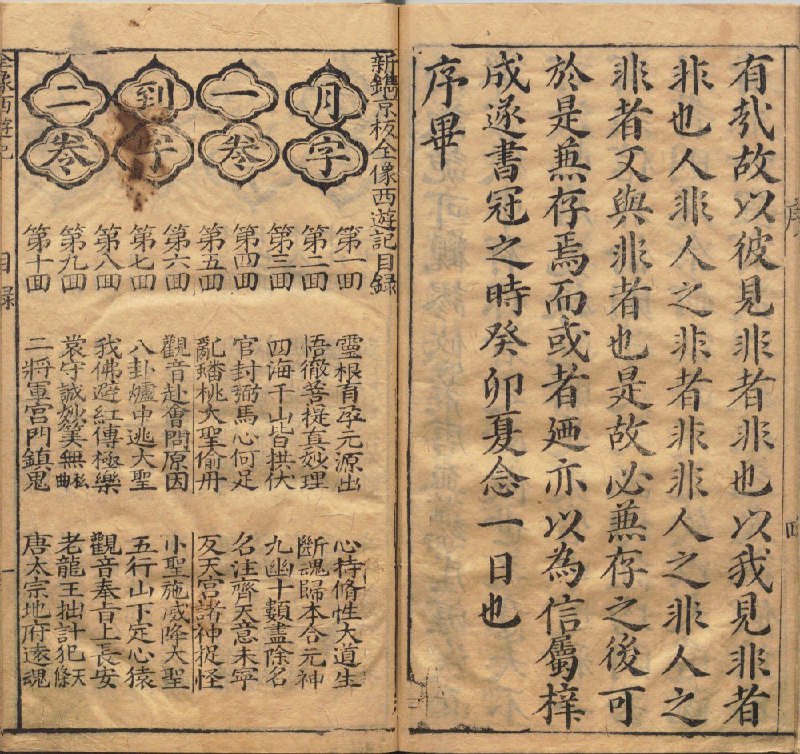 有哉故以彼見非者非也以我見非者
非也人非人之非者非非人之非人之
非者又與非者也是故必兼存之後可
於是兼存焉而或者廼亦以為信屬梓
成遂書冠之時癸卯夏念一日也
序畢
新鐫京板全像西遊記目錄
月字
一卷
到字
二卷
第一回 靈根育孕元源出 心持脩性大道生
第二回 悟徹菩提真妙理 斷魂歸本合元神
第三回 四海千山皆拱伏 九幽十類盡除名
第四回 官封弼馬心何足 名注齊天意未寧
第五回 亂蟠桃大聖偷丹 反天宮諸神捉怪
第六回 觀音赴會問原因 小聖施威降大聖
第七回 八卦爐中逃大聖 五行山下定心猿
第八回 我佛遊紅傳極樂 觀音奉旨上長安
第九回 袁守誠妙筭無私曲 老龍王拙計犯天條
第十回 二將軍宮門鎮鬼 唐太宗地府還魂
全像西遊記 目錄 一